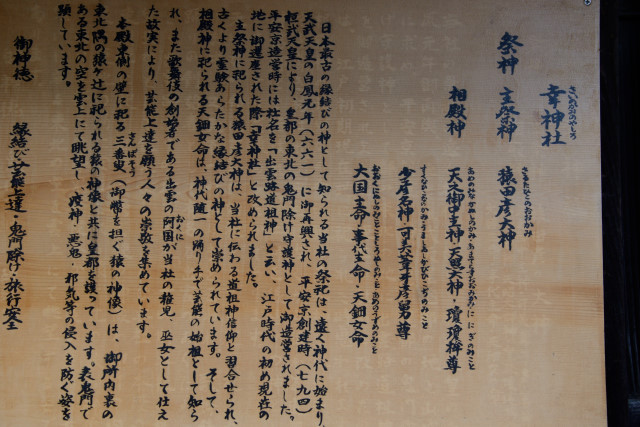 さいのかみのやしろ
幸神社
祭神 主祭神 猿田彦大神
さるたひこのおおかみ
相殿神 天之御中主神・天照大神・瓊瓊杵尊
少彦名神・可美葦芽彦男尊
大国主命・事代主命・天鈿女命
日本最古の縁結びの神として知られる当社の祭祀は、遠く神代に始まり、
天武天皇の白鳳元年(六六一)に御再興され、平安京創建時(七九四)
桓武天皇により、皇都の東北の鬼門除け守護神として御造営されました。
平安京造営時には社名を「出雲路道祖神」と云い、江戸時代の初め現在の
地に御遷座された際「幸神社」と改められました。
主祭神に祀られる猿田彦大神は、当社に伝わる道祖神信仰と習合せられ、
古くより霊験あらたかな縁結びの神として崇められています。そして、
相殿神に祀られる天鈿女命は、神代随一の踊り手で芸能の始祖として知ら
れ、また歌舞伎の創始者である出雲の阿国が当社の稚児、巫女として仕え
おくに
た故実により、芸能上達を願う人々の崇敬を集めています。
本殿東側の壁に祀る三番叟(御幣を担ぐ猿の神像)は、御所内裏の
さんばそう
東北隅の猿ヶ辻に祀られる猿の神像と共に皇都を護っています。表鬼門で
ある東北の空を雲上にて眺望し、疫神、悪鬼、邪気等の侵入を防ぐ姿を
顕しています。
御神徳 縁結び・芸能上達・鬼門除け・旅行安全